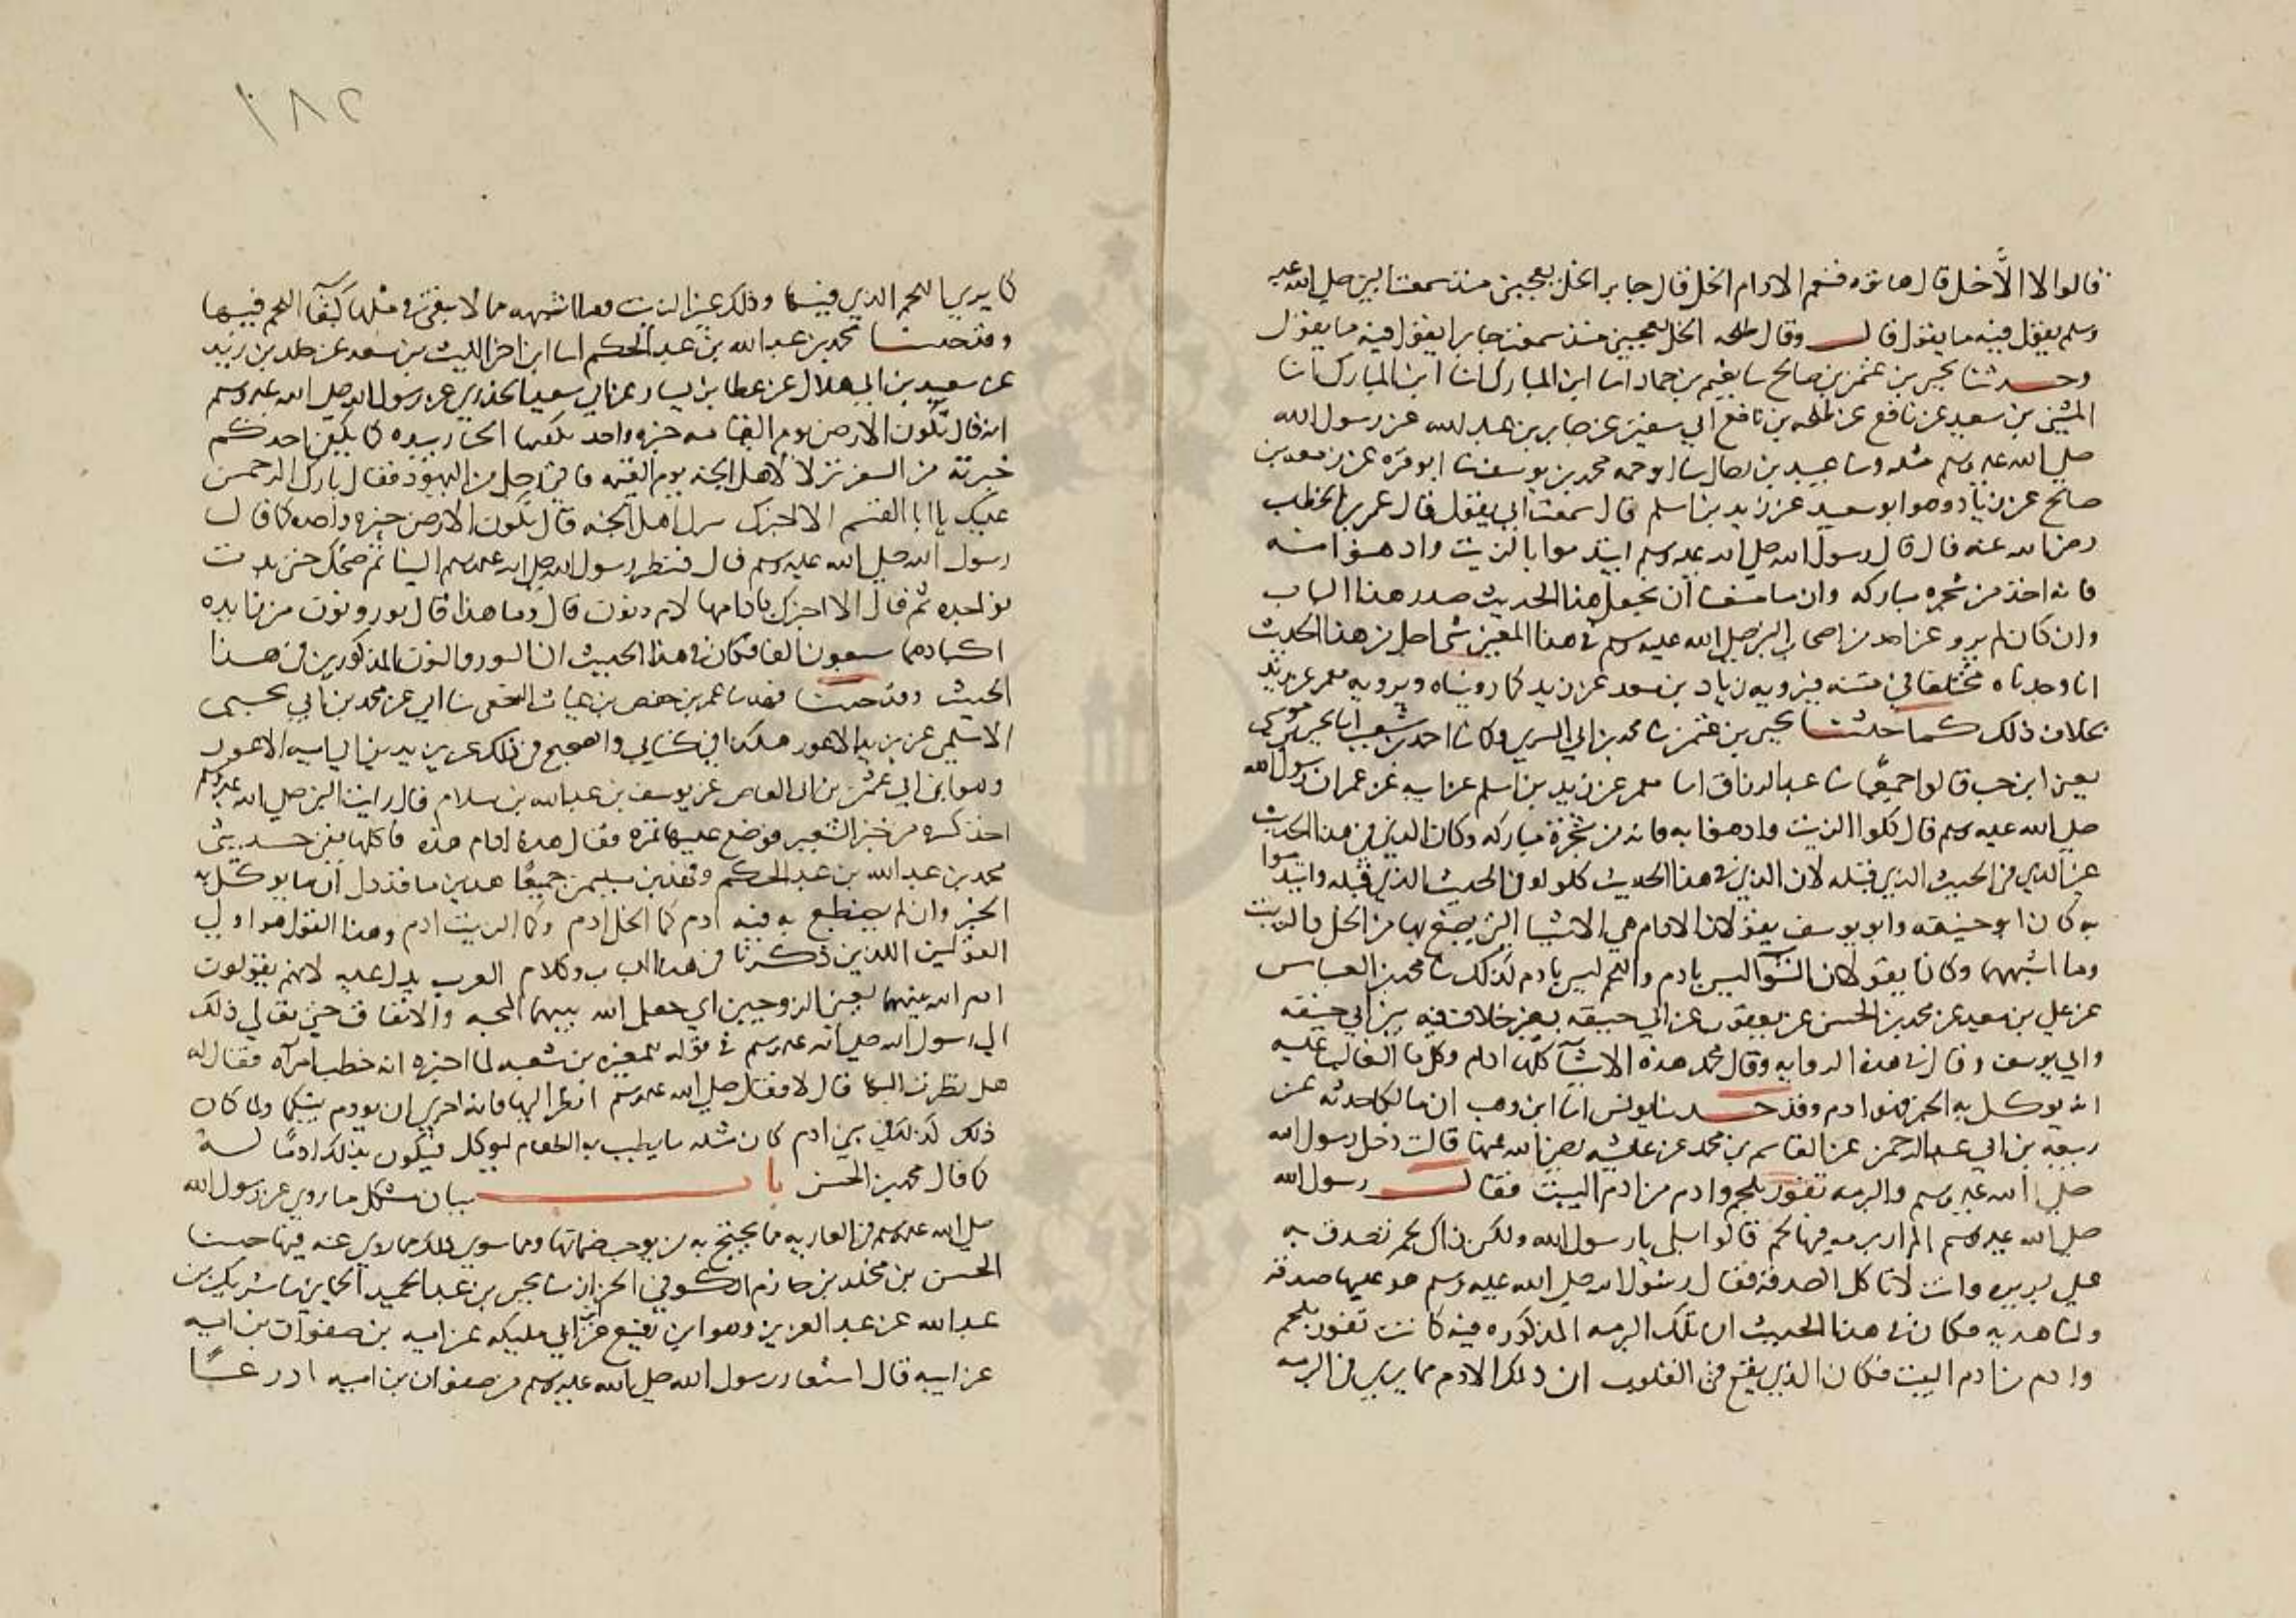 قالوا لا الا خل قال هاتوه فنعم الادام الخل قال جابر الخل يعجبني منذ سمعت النبي صلى الله عليه
وسلم يقول فيه ما يقول قال وقال طلحه الخل يعجبني منذ سمعت جابرا يقول فيه ما يقول
وحدثنا يحيى بن عثمن بن صالح سا نعيم بن حماد اسا ابن المبارك انا ابن المبارك انا
المثنى بن سعيد عن نافع عن طلحه بن نافع ابي سفين عن جابر بن عبد الله عن رسول الله
صلى الله عليه وسلم مثله وسا عبيد بن رحال سا ابو حمه محمد بن يوسف سا ابو قره عن زمعه بن
صالح عن زياد وهو ابو سعيد عن زيد بن اسلم قال سمعت ابي يقول قال عمر بن الخطب
رضي الله عنه قال قال رسول الله صلى الله عليه وسلم ايتدموا بالزيت وادهنوا منه
فانه اخذ من شجره مباركه وان ما منعنا ان نجعل هذا الحديث صدر هذا الباب
وان كان لم يرو عن احد من اصحاب النبي صلى الله عليه وسلم في هذا المعنى شي اجل من هذا الحديث
انا وجدناه مختلفا في متنه فيرويه زياد بن سعد عن زيد كما رويناه ويرويه معمر عن زيد
بخلاف ذلك كما حدثنا يحيى بن عثمن نا محمد بن ابي السري وكما نا احمد بن شعيب انا يحيى بن موسى
يعني ابن خب قالوا جميعا نا عبد الرزاق انا معمر عن زيد بن اسلم عن ابيه عن عمر ان رسول الله
صلى الله عليه وسلم قال كلوا الزيت وادهنوا به فانه من شجرة مباركه وكان الذي في هذا الحديث
غير الذي في الحديث الذي قبله لان الذي في هذا الحديث كلوا وفي الحديث الذي قبله وايتدموا
به كان ابو حنيفه وابو يوسف يقولان الادام هي الاشيا التي يصبغ بها من الخل والزيت
وما اشبههما وكانا يقولان الشوآ ليس بادم واللحم ليس بادم كذلك نا محمد بن العباس
عن علي بن معبد عن محمد بن الحسن عن يعقوب عن ابي حنيفه بغير خلاف فيه بين ابي حنيفه
وابي يوسف وقال في هذه الروايه وقال محمد هذه الاشيآ كلها ادام وكل ما الغالب عليه
انه يوكل به الخبز فهو ادم وقد حدثنا يونس انا ابن وهب ان مالكا حدثه عن
ربيعه بن ابي عبد الرحمن عن القاسم بن محمد عن عايشه رضي الله عنها قالت دخل رسول الله
صلى الله عليه وسلم والبرمه تفور بلحم وادم من ادم البيت فقال رسول الله
صلى الله عليه وسلم الم ار برمه فيها لحم قالوا بلى يا رسول الله ولكن ذاك لحم تصدق به
على بريره وانت لا تاكل الصدقه فقال رسول الله صلى الله عليه وسلم هو عليها صدقه
ولنا هديه فكان في هذا الحديث ان تلك البرمه المذكوره فيه كانت تفور بلحم
وادم من ادم البيت فكان الذي يقع في القلوب ان ذلك الادم مما يربى في البرمه
١٨٢
كما يربى اللحم الذي فيها وذلك غير الزيت وما اشبهه مما لا يبقى في مثلها كبقآ اللحم فيها
وقد حدثنا محمد بن عبد الله بن عبد الحكم انا ابي اخبرنا الليث بن سعد عن خلد بن يزيد
عن سعيد بن ابي هلال عن عطا بن يسار عن ابي سعيد الخدري عن رسول الله صلى الله عليه وسلم
انه قال تكون الارض يوم القيامه خبزه واحده يكفيها الجبار بيده كما يكفي احدكم
خبزته في السفر نزلا لاهل الجنه يوم القيمه فاتى رجل من اليهود فقال بارك الرحمن
عليك يا ابا القسم الا اخبرك بنزل اهل الجنه قال تكون الارض خبزه واحده كما قال
رسول الله صلى الله عليه وسلم قال فنظر رسول الله صلى الله عليه وسلم الينا ثم ضحك حتى بدت
نواجده ثم قال الا اخبرك بادامها لام ونون قال وما هذا قال ثور ونون من زايده
اكبادهما سبعون الفا فكان في هذا الحديث ان الثور والنون المذكورين في هذا
الحديث وقد حدثنا فهد نا عمر بن حفص بن غياث النخعي نا ابي عن محمد بن ابي يحيى
الاسلمي عن يزيد الاعور هكذا في كتابي والصحيح في ذلك عن يزيد بن ابي اميه الاعور
وهو ابن ابي عثمن بن ابي العاص عن يوسف بن عبد الله بن سلام قال رايت النبي صلى الله عليه وسلم
اخذ كسره من خبز الشعير فوضع عليها تمره فقال هذه ادام هذه فاكلها ففي حديثي
محمد بن عبد الله بن عبد الحكم وفهد بن سليمن جميعا هذين ما قد دل ان ما يوكل به
الخبز وان لم يصطبغ به فيه ادم كما الخل ادم وكما الزيت ادم وهذا القول هو اولى
القولين اللذين ذكرنا في هذا الباب وكلام العرب يدل عليه لانهم يقولون
ادم الله بينهما يعني الزوجين اي جعل الله بينهما المحبه والاتفاق حتى تعالى ذلك
الى رسول الله صلى الله عليه وسلم في قوله للمغيره بن شعبه لما اخبره انه خطب امرآه فقال له
هل نظرت اليها قال لا فقال صلى الله عليه وسلم انظر اليها فانه احرى ان يودم بينكما ولما كان
ذلك كذلك في بني ادم كان مثله ما يطيب به الطعام ليوكل فيكون بذلك ادمًا له
كما قال محمد بن الحسن باب بيان مشكل ما روي عن رسول الله
صلى الله عليه وسلم في العاريه مما يحتج به من يوجب ضمانها ومما سوى ذلك مما روي عنه فيها حدثنا
الحسن بن مخلد بن حازم الكوفي الخزاز نا يحيى بن عبد الحميد الحماني نا شريك بن
عبد الله عن عبد العزيز وهو ابن رفيع عن ابن ابي مليكه عن اميه بن صفوان بن اميه
عن ابيه قال استعار رسول الله صلى الله عليه وسلم من صفوان بن اميه ادرعًا